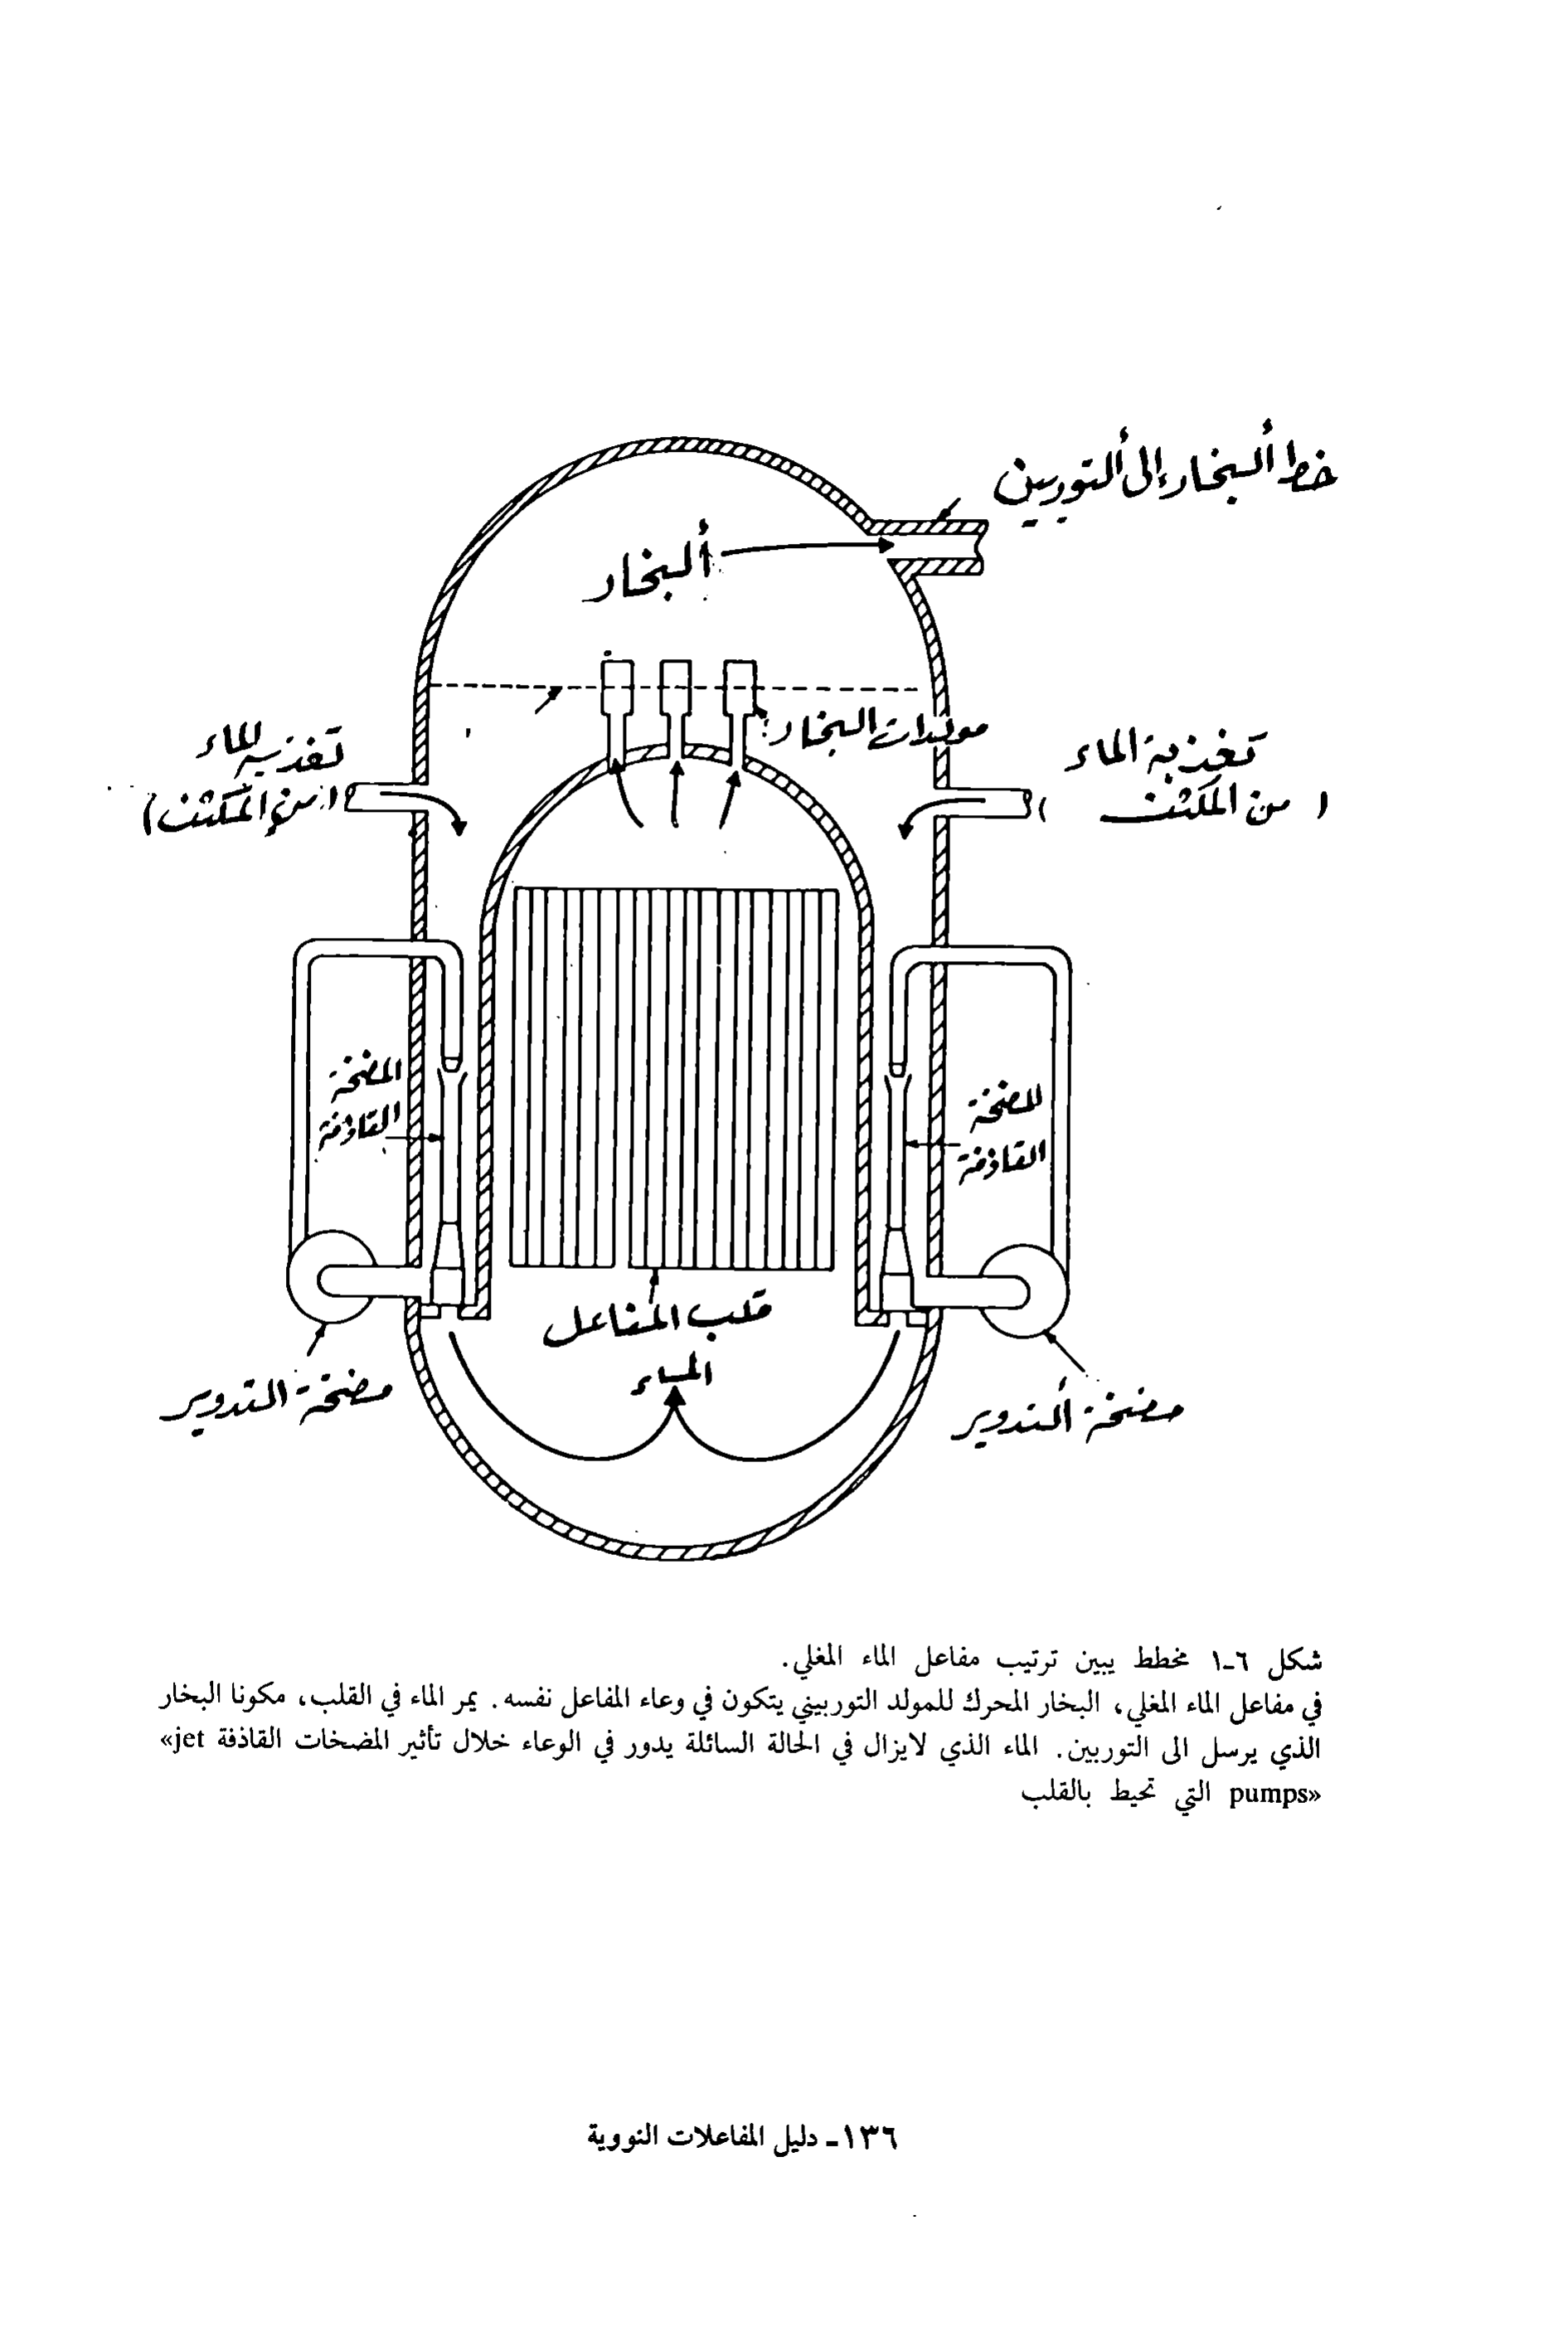 خط ألبخار إلى ألتوربين
ألبخار
مولدات البخار
تغذية الماء
(من المكثف)
تغذية الماء
(من المكثف)
المضخة
القاذفة
المضخة
القاذفة
قلب المفاعل
الماء
مضخة ألتدوير
مضخة التدوير
شكل ٦-١ مخطط يبين ترتيب مفاعل الماء المغلي.
في مفاعل الماء المغلي، البخار المحرك للمولد التوربيني يتكون في وعاء المفاعل نفسه. يمر الماء في القلب، مكونا البخار
الذي يرسل الى التوربين. الماء الذي لايزال في الحالة السائلة يدور في الوعاء خلال تأثير المضخات القاذفة «jet
pumps» التي تحيط بالقلب
١٣٦- دليل المفاعلات النووية